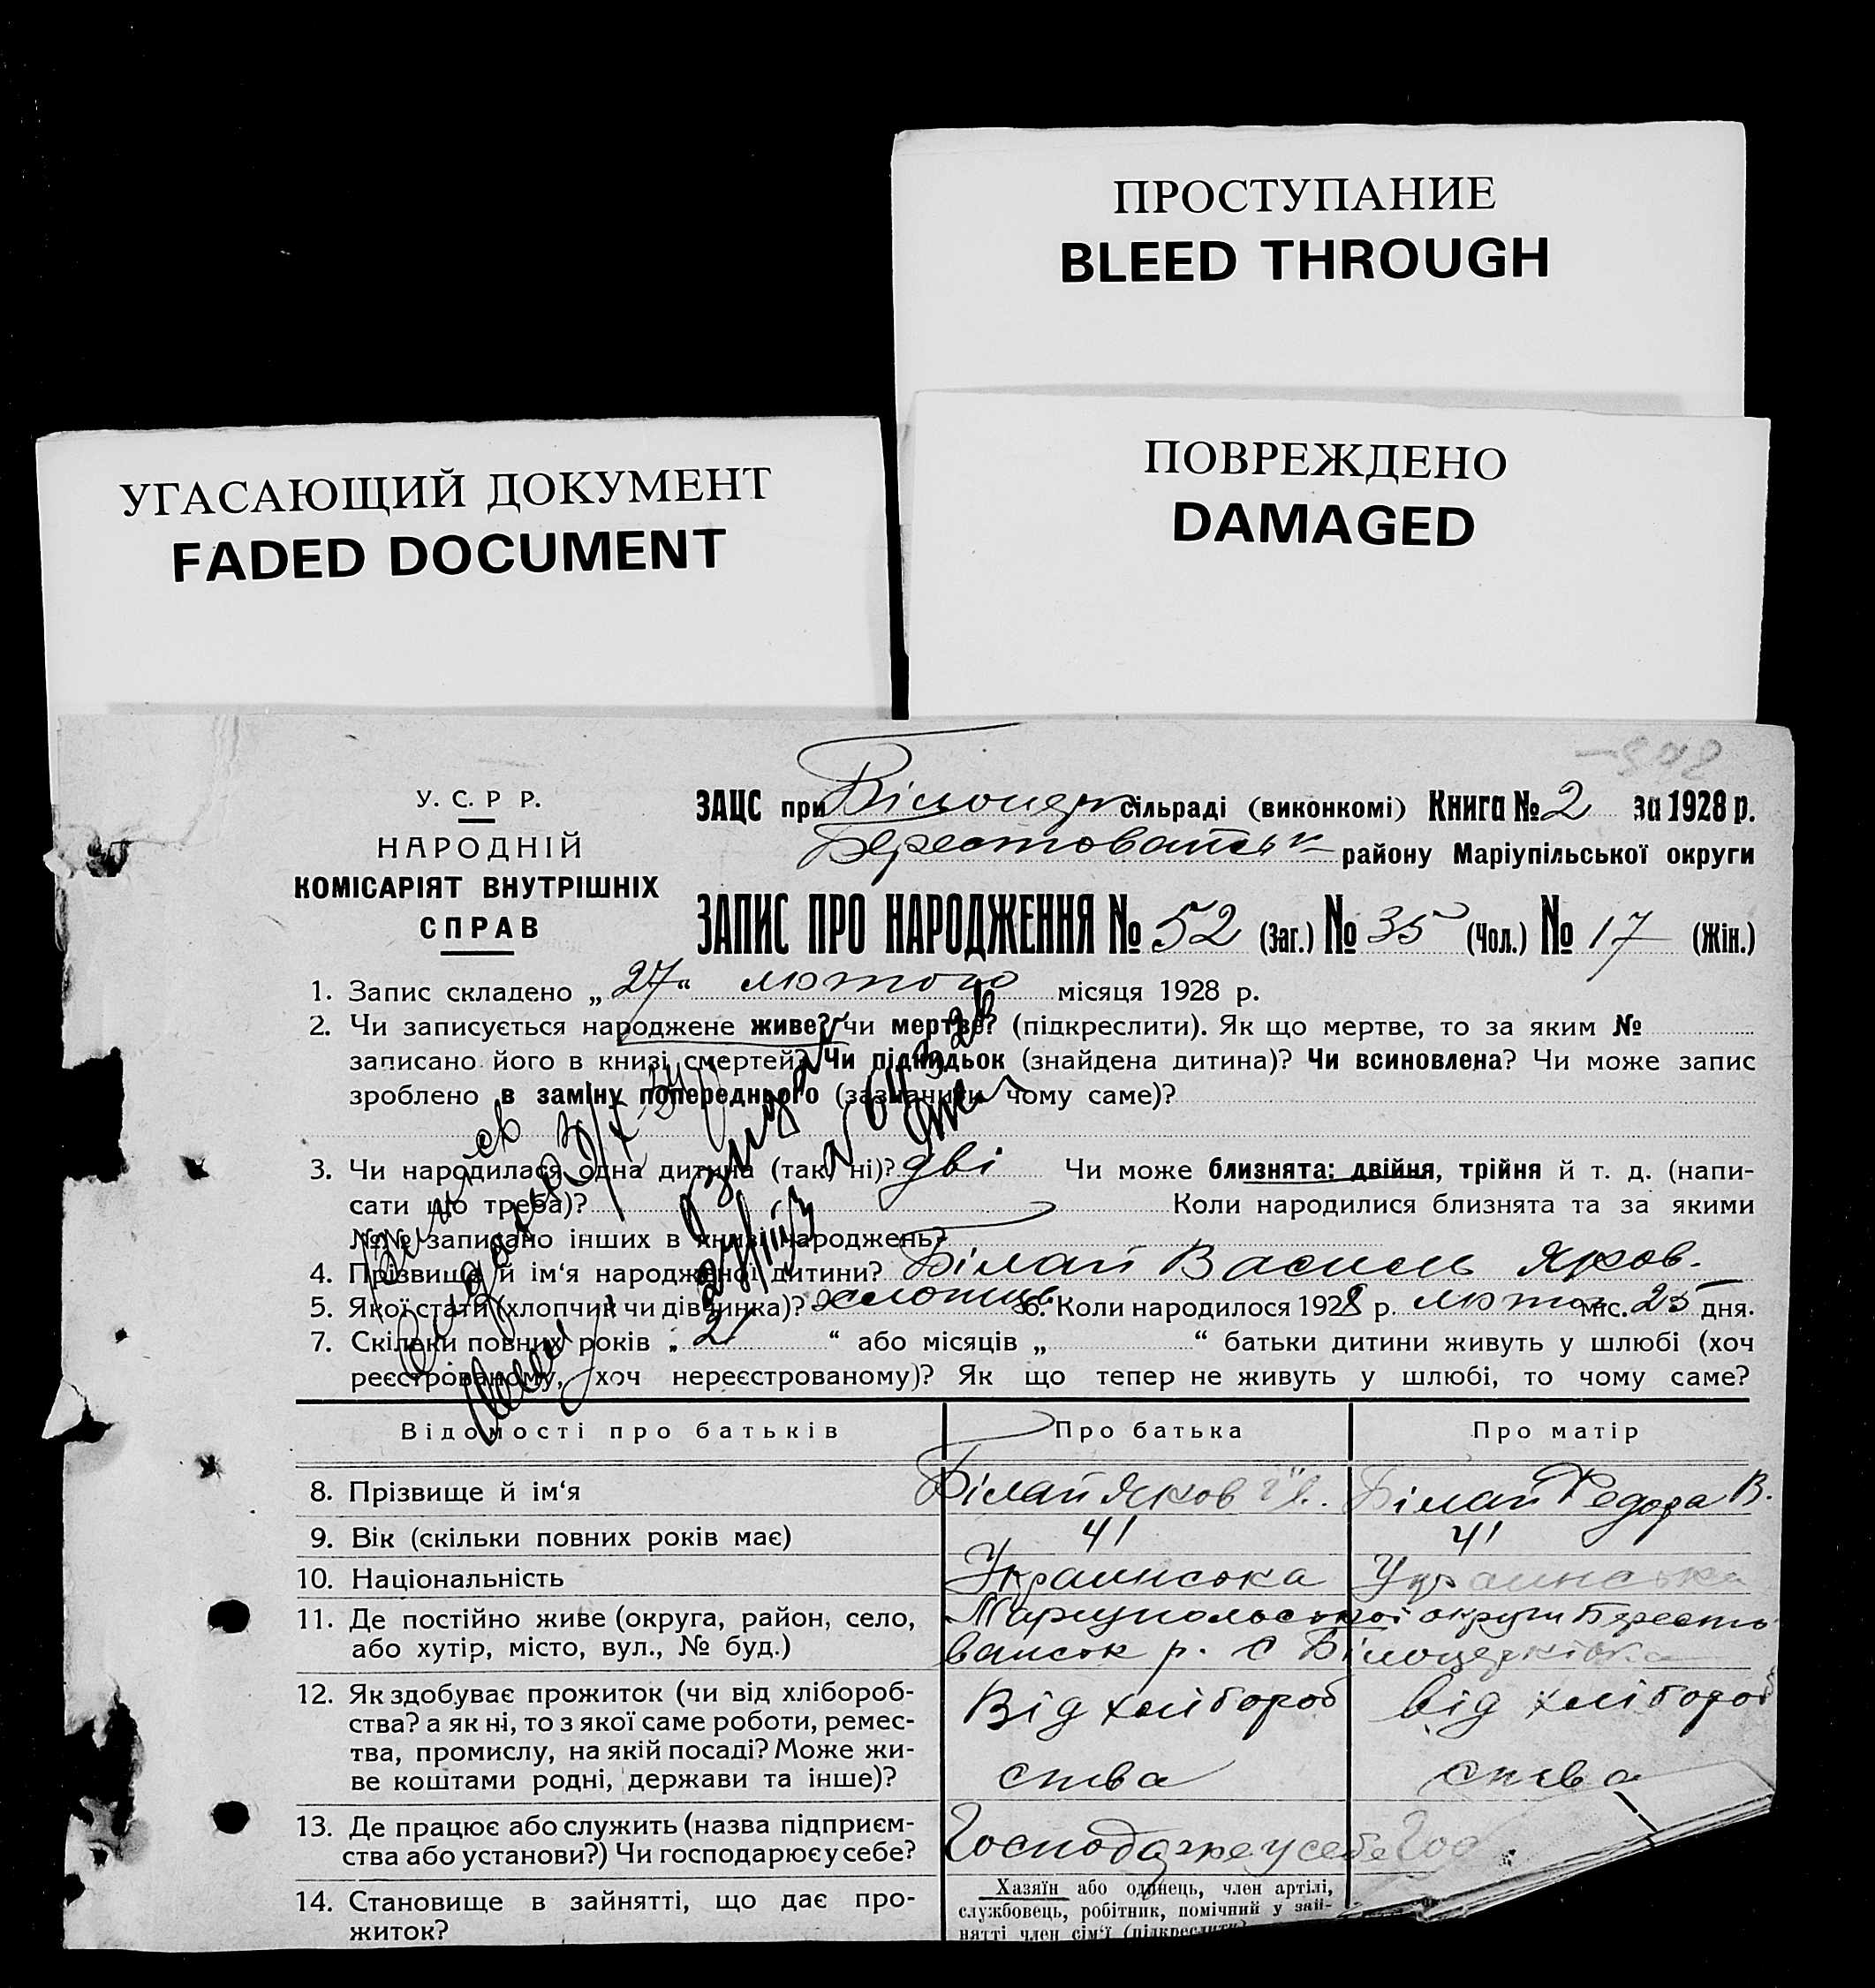 ПРОСТУПАНИЕ
BLEED THROUGH
УГАСАЮЩИЙ ДОКУМЕНТ
FADED DOCUMENT
ПОВРЕЖДЕНО
DAMAGED
У. С. Р Р.
НАРОДНІЙ
КОМІСАРІЯТ ВНУТРІШНІХ
СПРАВ
ЗАЦС при Білоцерк сільраді (виконкомі) Книга № 2 за 1928 р.
Берестоватськ району Маріупільської округи
ЗАПИС ПРО НАРОДЖЕННЯ № 52 (Заг.) № 35 (Чол.) № 17 (Жін.)
1. Запис складено „27“ лютого місяця 1928 р.
2. Чи записується народжене живе? чи мертве? (підкреслити). Як що мертве, то за яким №
записано його в книзі смертей? Чи підкидьок (знайдена дитина)? Чи всиновлена? Чи може запис
зроблено в заміну попереднього (зазначити чому саме)?
3. Чи народилася одна дитина (так, ні)? дві Чи може близнята: двійня, трійня й т. д. (напи-
сати що треба)? Коли народилися близнята та за якими
№№ записано інших в книзі народжень?
4. Прізвище й ім‘я народженої дитини? Білай Василь Яков.
5. Якої стати (хлопчик чи дівчинка)? хлопиць 6. Коли народилося 1928 р. лютого міс. 25 дня.
7. Скільки повних років „ 21 “ або місяців „ “ батьки дитини живуть у шлюбі (хоч
реєстрованому, хоч нереєстрованому)? Як що тепер не живуть у шлюбі, то чому саме?
Відомості про батьків Про батька Про матір
8. Прізвище й ім‘я Білай Яков Білай Федора В.
9. Вік (скільки повних років має) 41 41
10. Національність Украинська Украинська
11. Де постійно живе (округа, район, село, Мариупольської округи Бересто
або хутір, місто, вул., № буд.) ватськ р. с Білоцерківка
12. Як здобуває прожиток (чи від хлібороб- Від хлібороб від хлібороб
ства? а як ні, то з якої саме роботи, ремес-
тва, промислу, на якій посаді? Може жи-
ве коштами родні, держави та інше)? ства ства
13. Де працює або служить (назва підприєм- Господарює у себе Гос
ства або установи?) Чи господарює у себе?
14. Становище в зайнятті, що дає про- Хазяїн або одинець, член артілі,
житок? службовець, робітник, помічний у зай-
нятті член сім‘ї (підкреслити)